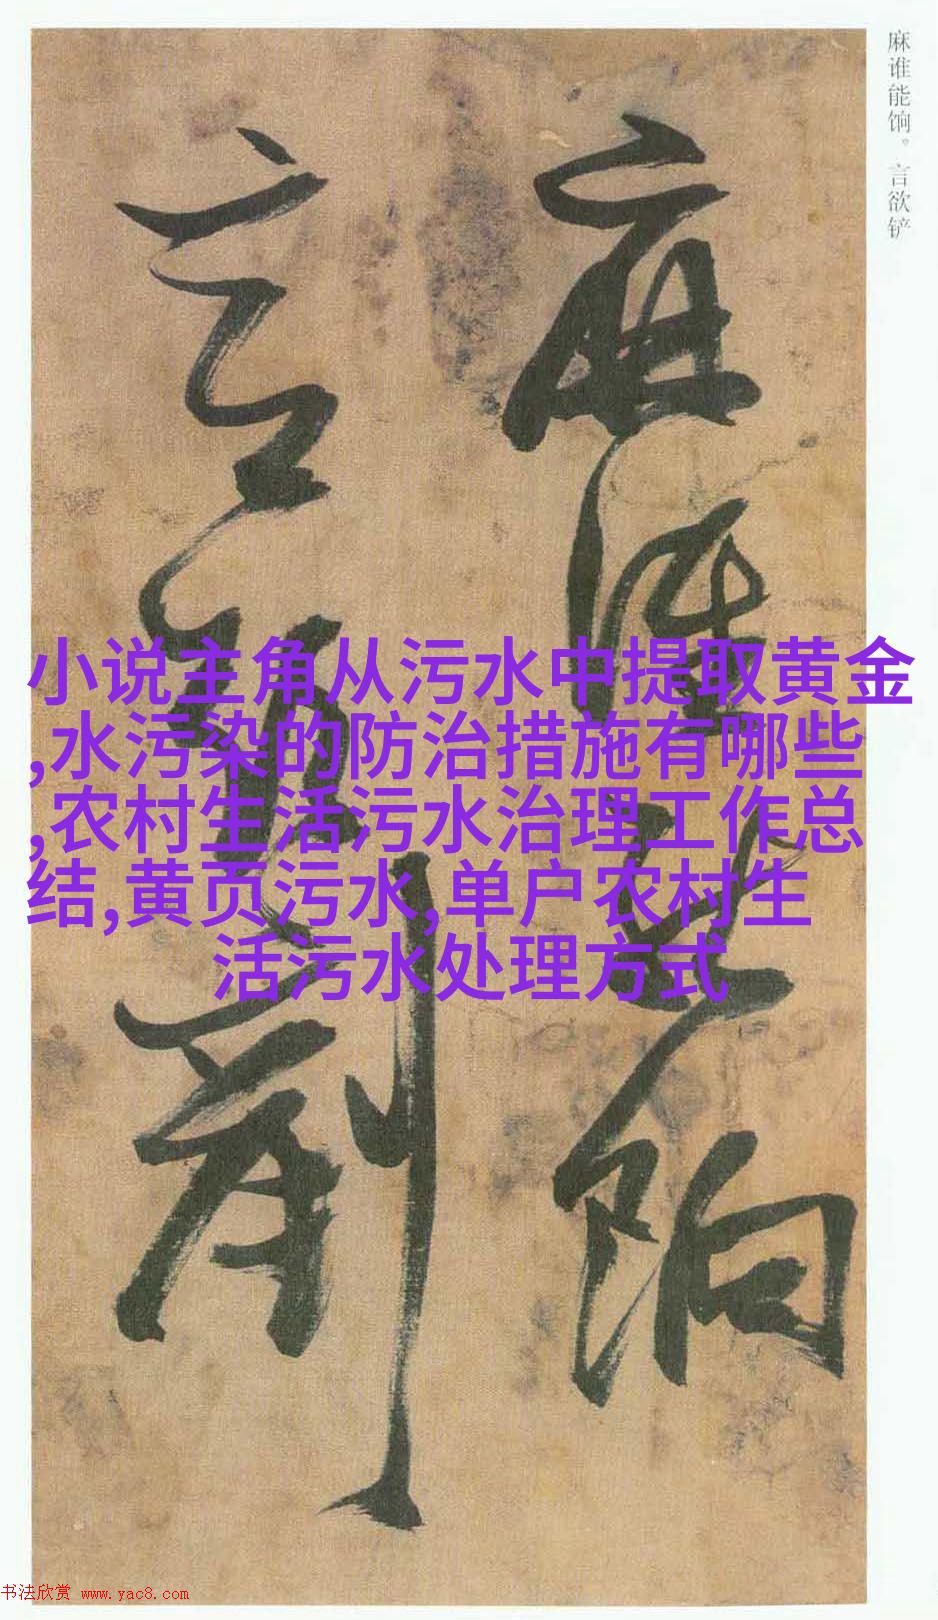 麻谁能饷。言欲铲
麻谁能饷
言欲铲
小说主角从污水中提取黄金
,水污染的防治措施有哪些
,农村生活污水治理工作总
结,黄页污水,单户农村生
活污水处理方式
书法欣赏 www.yac8.com